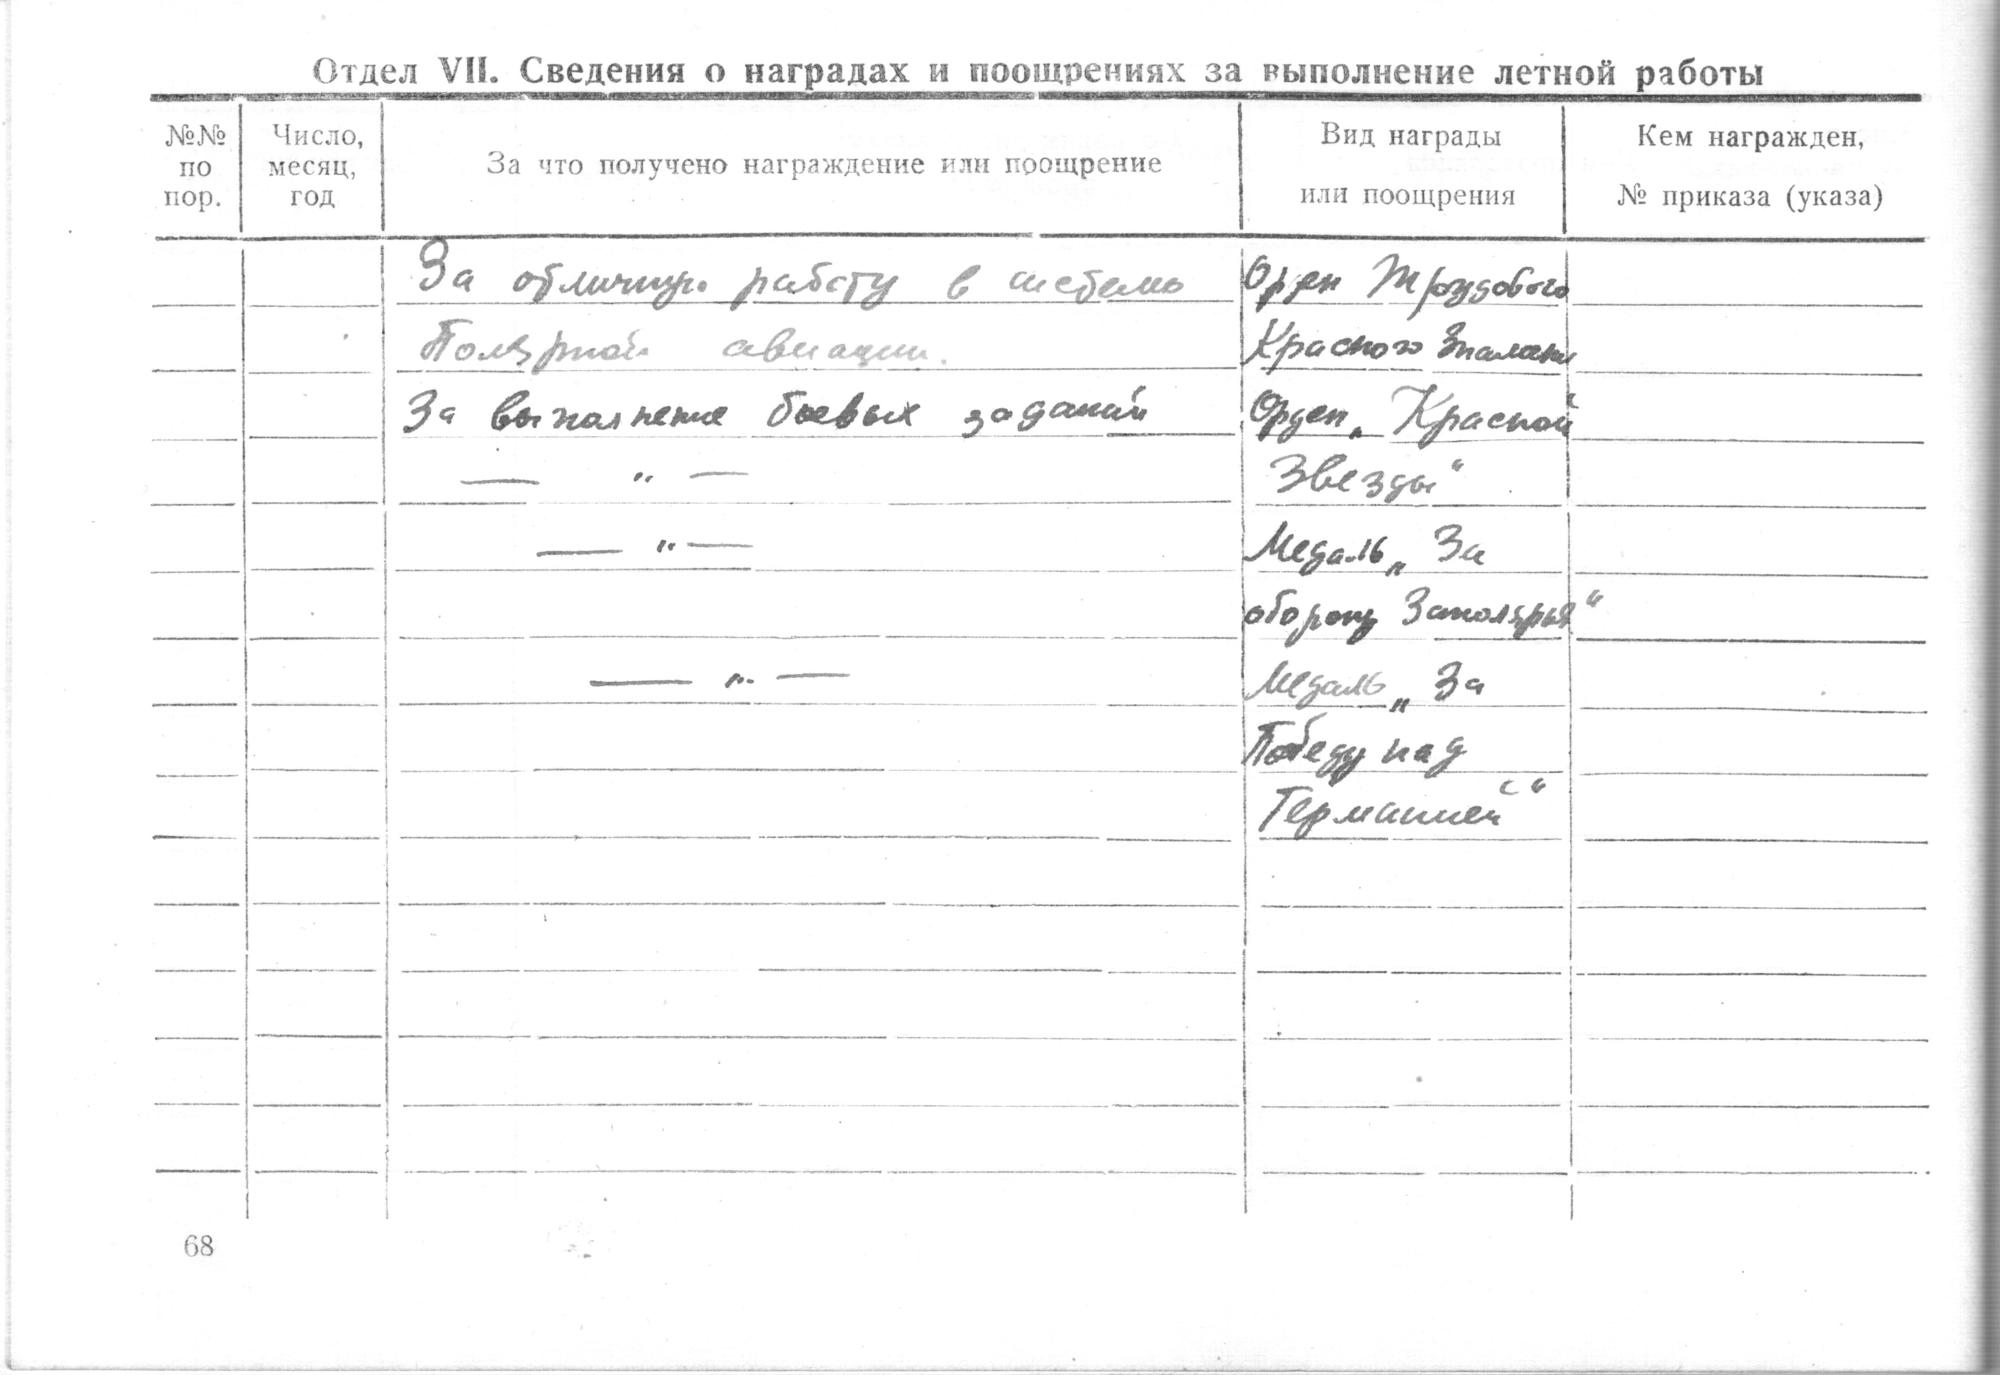 Отдел VII. Сведения о наградах и поощрениях за выполнение летной работы
№№ по пор.
Число, месяц, год
За что получено награждение или поощрение
Вид награды или поощрения
Кем награжден, № приказа (указа)
За отличную работу в системе Орден Трудового
Полярной авиации. Красного Знамени
За выполнение боевых заданий Орден „Красной
— „ — Звезды“
— „ — Медаль „За
оборону Заполярья“
— „ — Медаль „За
Победу над
Германией“
68